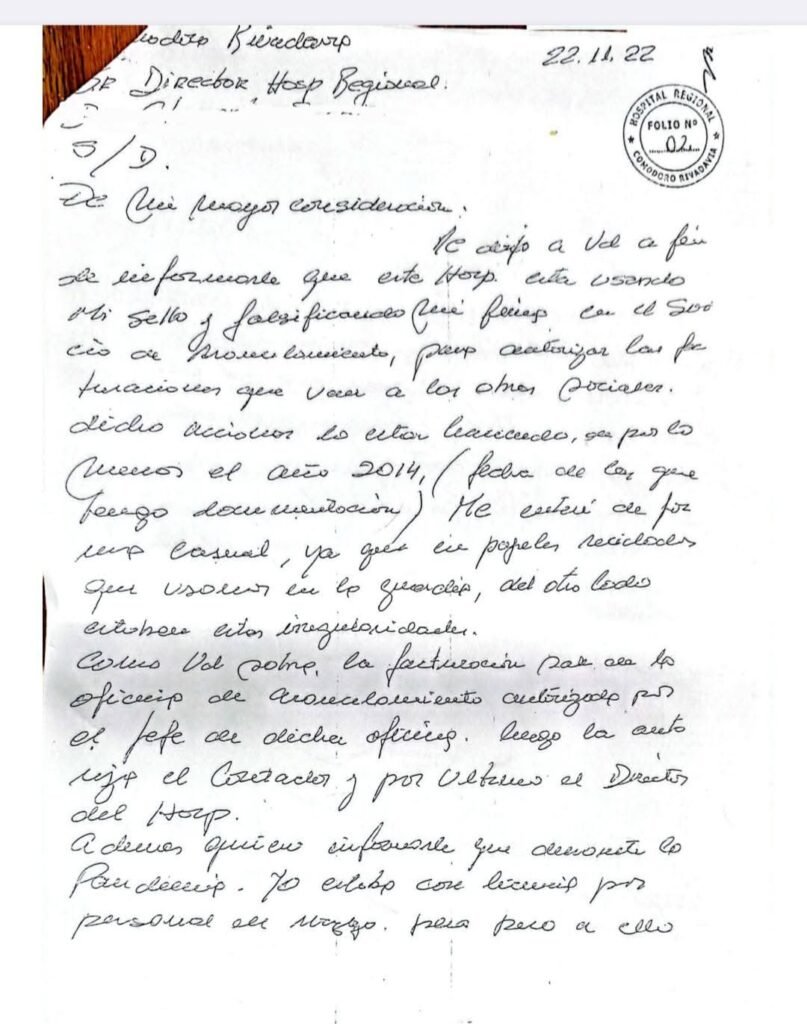 Rivadavia
22.11.22
Sr Director Hosp Regional.
HOSPITAL REGIONAL
FOLIO Nº
02
COMODORO RIVADAVIA
S/D.
De mi mayor consideración.
Me dirijo a Ud a fin
de informarle que este Hosp. esta usando
Mi sello y falsificando mi firma en el Servi
cio de Arancelamiento, para autorizar las fac
turaciones que van a las obras sociales.
dicho acciones lo estan haciendo, por lo
menos el año 2014, (fecha de las que
tengo documentación) Me enteré de for
ma casual, ya que en papeles reciclados
que usamos en la guardia, del otro lado
estaban estas irregularidades.
Como Ud sabra, la facturación sale de la
oficina de Arancelamiento autorizada por
el Jefe de dicha oficina. luego la auto
riza el Contador y por Ultimo el Director
del Hosp.
Ademas quiero informarle que durante la
Pandemia. Yo estaba con licencia por
personal en riesgo. pero a ello